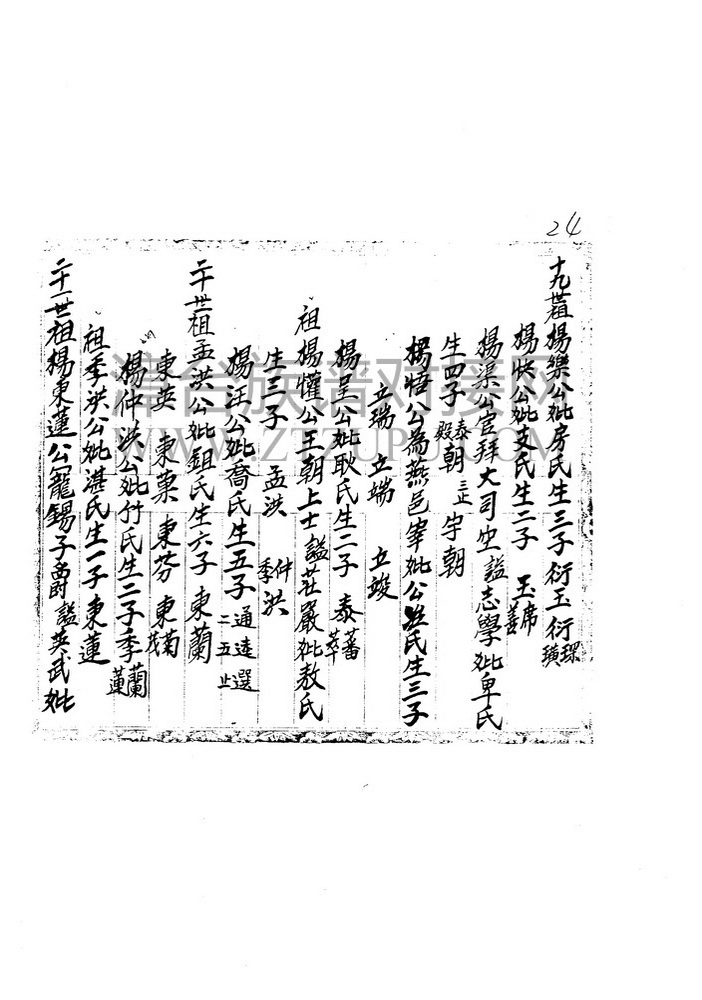 24
十九世祖楊樂公妣房氏生三子衍玉衍琛璜
楊快公妣支氏生二子 玉席善
楊渠公官拜大司空謚志學妣卑氏
生四子泰殿朝三止宇朝
楊愇公為燕邑宰妣公氏生三子
立瑞 立端 立竣
楊呈公妣耿氏生二子 泰蕃萃
祖楊懽公王朝上士謚莊嚴妣敖氏
生三子 孟洪 仲季洪
楊汪公妣喬氏生五子通達選二五止
二十世祖孟洪公妣鉏氏生六子東蘭
東英 東菓 東芬 東菊茂
楊仲洪公妣竹氏生二子季蘭蓮
祖季洪公妣湛氏生一子東蓮
二十一世祖楊東蓮公寵錫子爵謚英武妣
漳台族谱对接网
WWW.ZTZUPU.COM